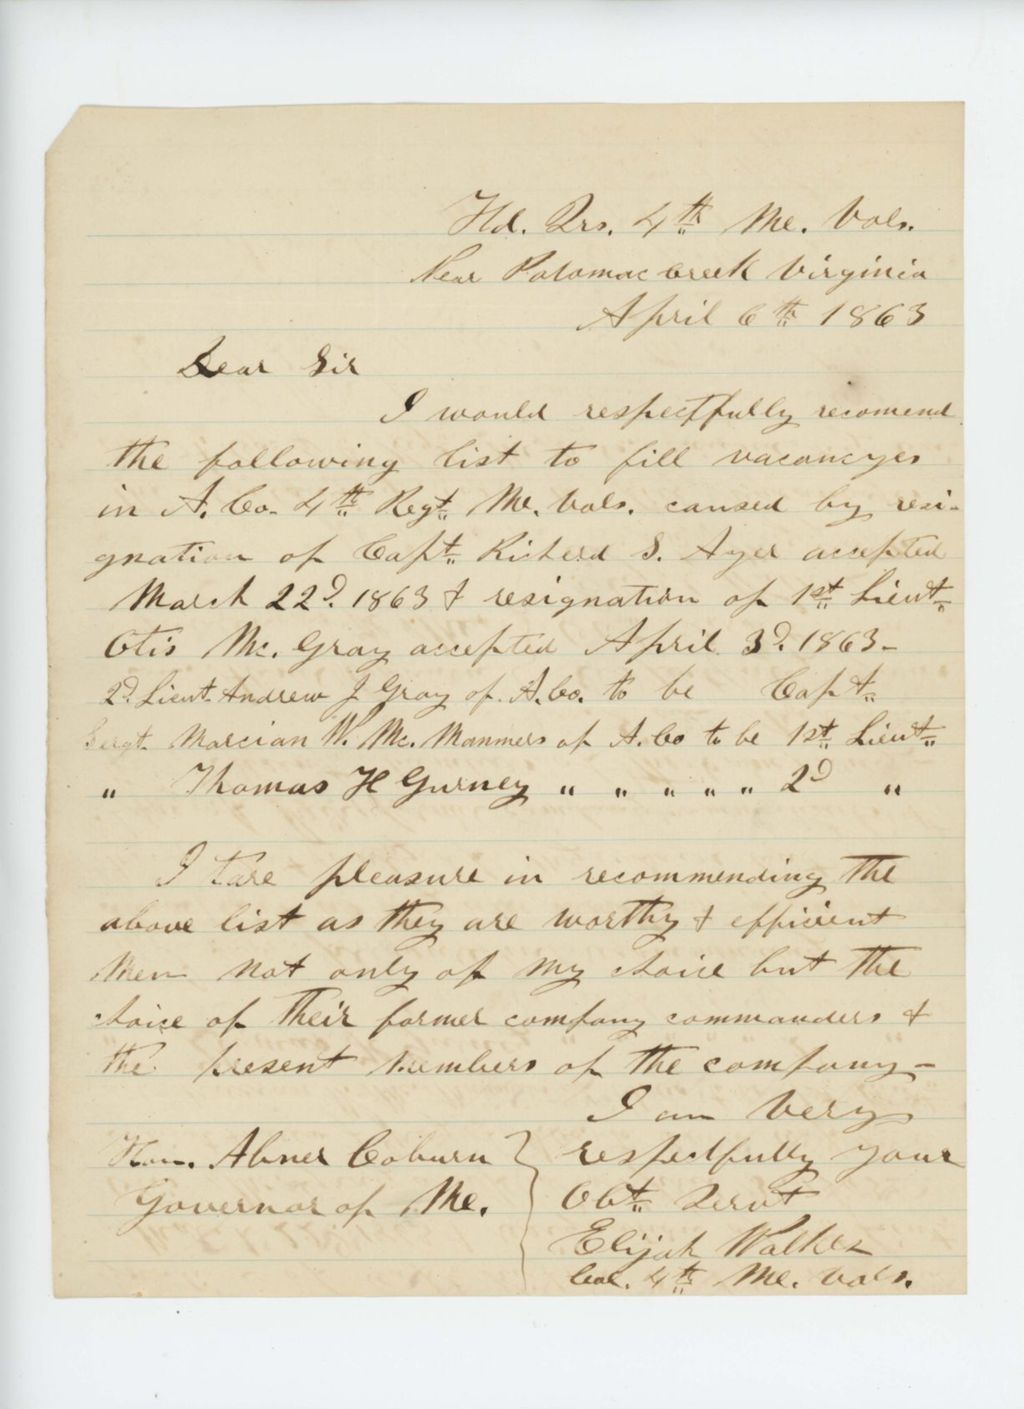 Hd. Qrs. 4th Me. Vols.
Near Potomac Creek Virginia
April 6th 1863
Dear Sir
I would respectfully recomend
the following list to fill vacancyes
in A. Co. 4th Regt. Me. Vols. caused by resi-
gnation of Capt. Richerd S. Ayer accepted
March 22d. 1863 & resignation of 1st Lieut.
Otis Mc. Gray accepted April 3d. 1863-
2d Lieut. Andrew J Gray of A. Co. to be Capt.
Sergt. Marcian W. Mc. Manmers of A. Co to be 1st Lieut.
" Thomas H Gurney " " " " " 2d "
I take pleasure in recommending the
above list as they are worthy & efficient
Men not only of my choice but the
choice of their former company commanders &
the present members of the company-
I am Very
Hon. Abner Coburn } respectfully your
Governor of Me. } Obt. Servt
Elijah Walker
Col. 4th Me. Vols.